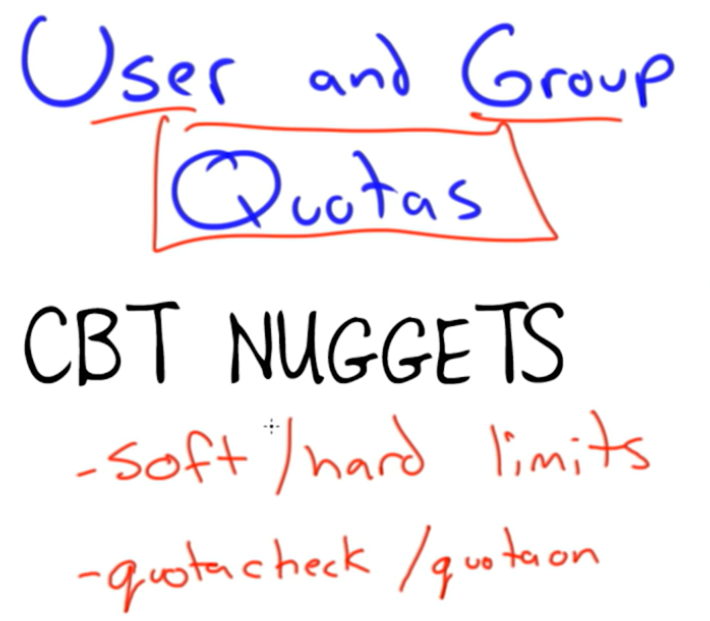 User and Group
Quotas
CBT NUGGETS
- soft /hard limits
- quotacheck /quotaon